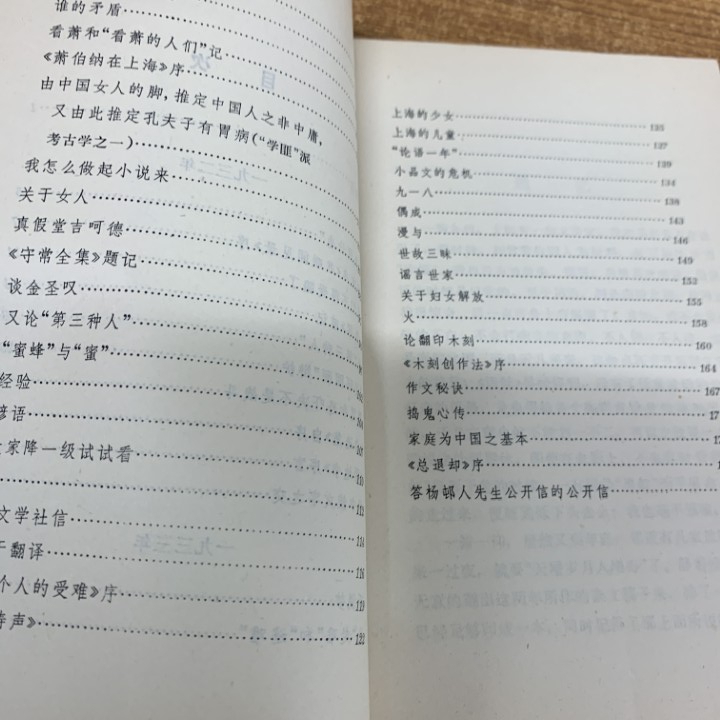 谁的矛盾
看萧和“看萧的人们”记
《萧伯纳在上海》序
由中国女人的脚,推定中国人之非中庸,
又由此推定孔夫子有胃病(“学匪”派
考古学之一)
我怎么做起小说来
关于女人
真假堂吉呵德
《守常全集》题记
谈金圣叹
又论“第三种人”
“蜜蜂”与“蜜”
经验
谚语
家降一级试试看
文学社信
于翻译 116
个人的受难》序 119
声》 122
上海的少女 125
上海的儿童 127
“论语一年” 129
小品文的危机 134
九一八 138
偶成 143
漫与 146
世故三昧 149
谣言世家
关于妇女解放 155
火 158
论翻印木刻 160
《木刻创作法》序 164
作文秘诀 167
捣鬼心传
家庭为中国之基本
《总退却》序
答杨邨人先生公开信的公开信
目 次
一九三二年
一九三三年